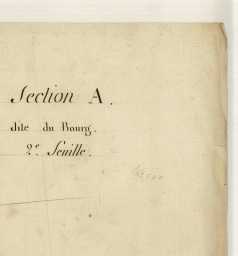 Section A.
dite du Bourg.
2e Feuille.